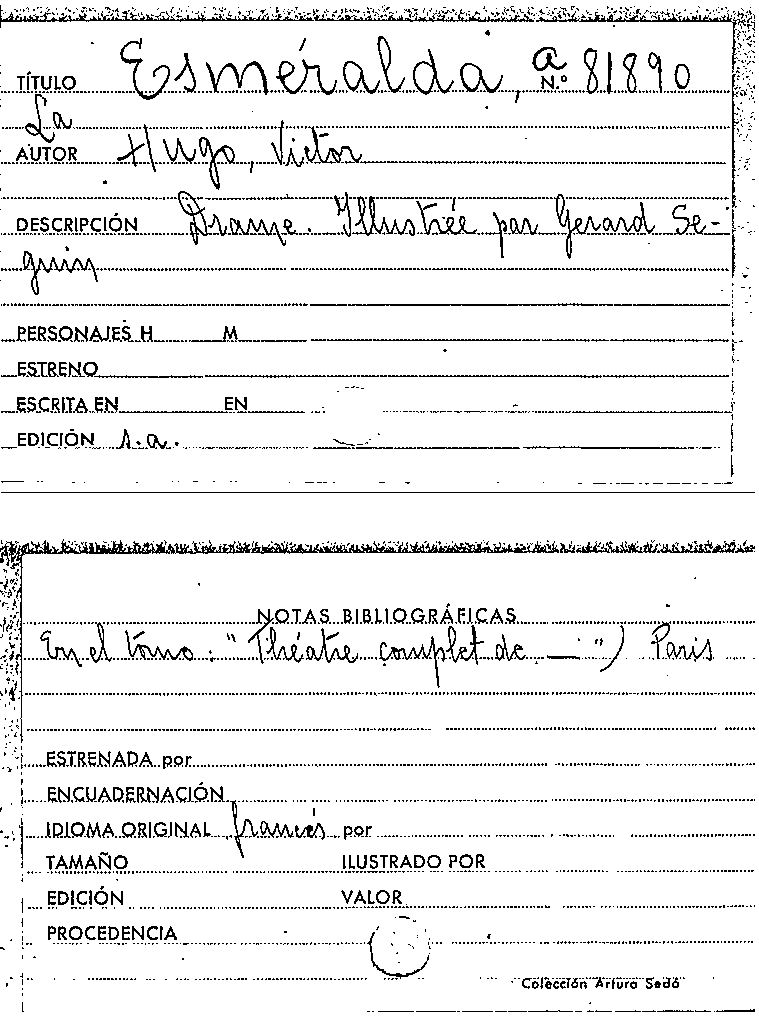 TÍTULO Esmeralda, a N.º 81890
La
AUTOR Hugo, Victor
DESCRIPCIÓN Drame. Illustrée par Gerard Se-
guin
PERSONAJES H M
ESTRENO
ESCRITA EN EN
EDICIÓN s.a.
NOTAS BIBLIOGRÁFICAS
En el tomo: "Théatre complet de — ") Paris
ESTRENADA por
ENCUADERNACIÓN
IDIOMA ORIGINAL francés por
TAMAÑO ILUSTRADO POR
EDICIÓN VALOR
PROCEDENCIA
Colección Arturo Sedó